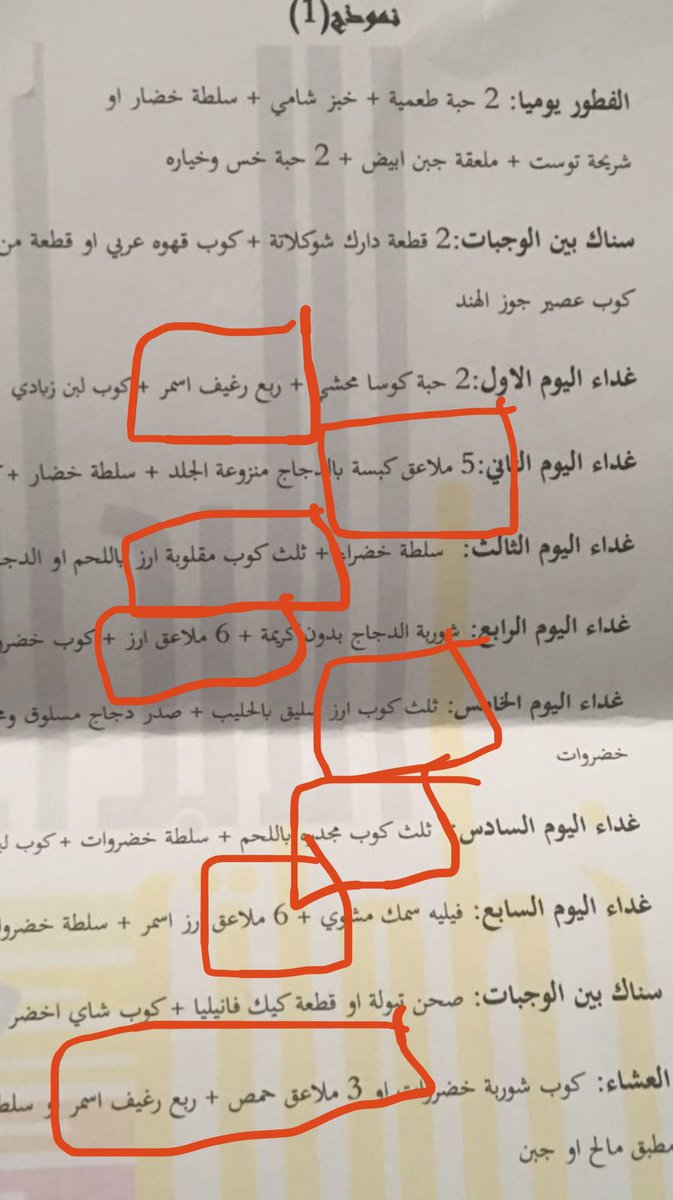 نموذج(1)
الفطور يوميا: 2 حبة طعمية + خبز شامي + سلطة خضار او
شريحة توست + ملعقة جبن ابيض + 2 حبة خس وخياره
سناك بين الوجبات:2 قطعة دارك شوكلاتة + كوب قهوه عربي او قطعة من
كوب عصير جوز الهند
غداء اليوم الاول:2 حبة كوسا محشي + ربع رغيف اسمر + كوب لبن زبادي
غداء اليوم الثاني:5 ملاعق كبسة بالدجاج منزوعة الجلد + سلطة خضار +
غداء اليوم الثالث: سلطة خضراء + ثلث كوب مقلوبة ارز باللحم او
غداء اليوم الرابع: شوربة الدجاج بدون كريمة + 6 ملاعق ارز + كوب
غداء اليوم الخامس: ثلث كوب ارز سليق بالحليب + صدر دجاج مسلوق
خضروات
غداء اليوم السادس: ثلث كوب مجدره باللحم + سلطة خضروات + كوب
غداء اليوم السابع: فيليه سمك مشوي + 6 ملاعق ارز اسمر + سلطة
سناك بين الوجبات: صحن تبولة او قطعة كيك فانيليا + كوب شاي اخضر
العشاء: كوب شوربة خضروات او 3 ملاعق حمص + ربع رغيف اسمر
مطبق مالح او جبن